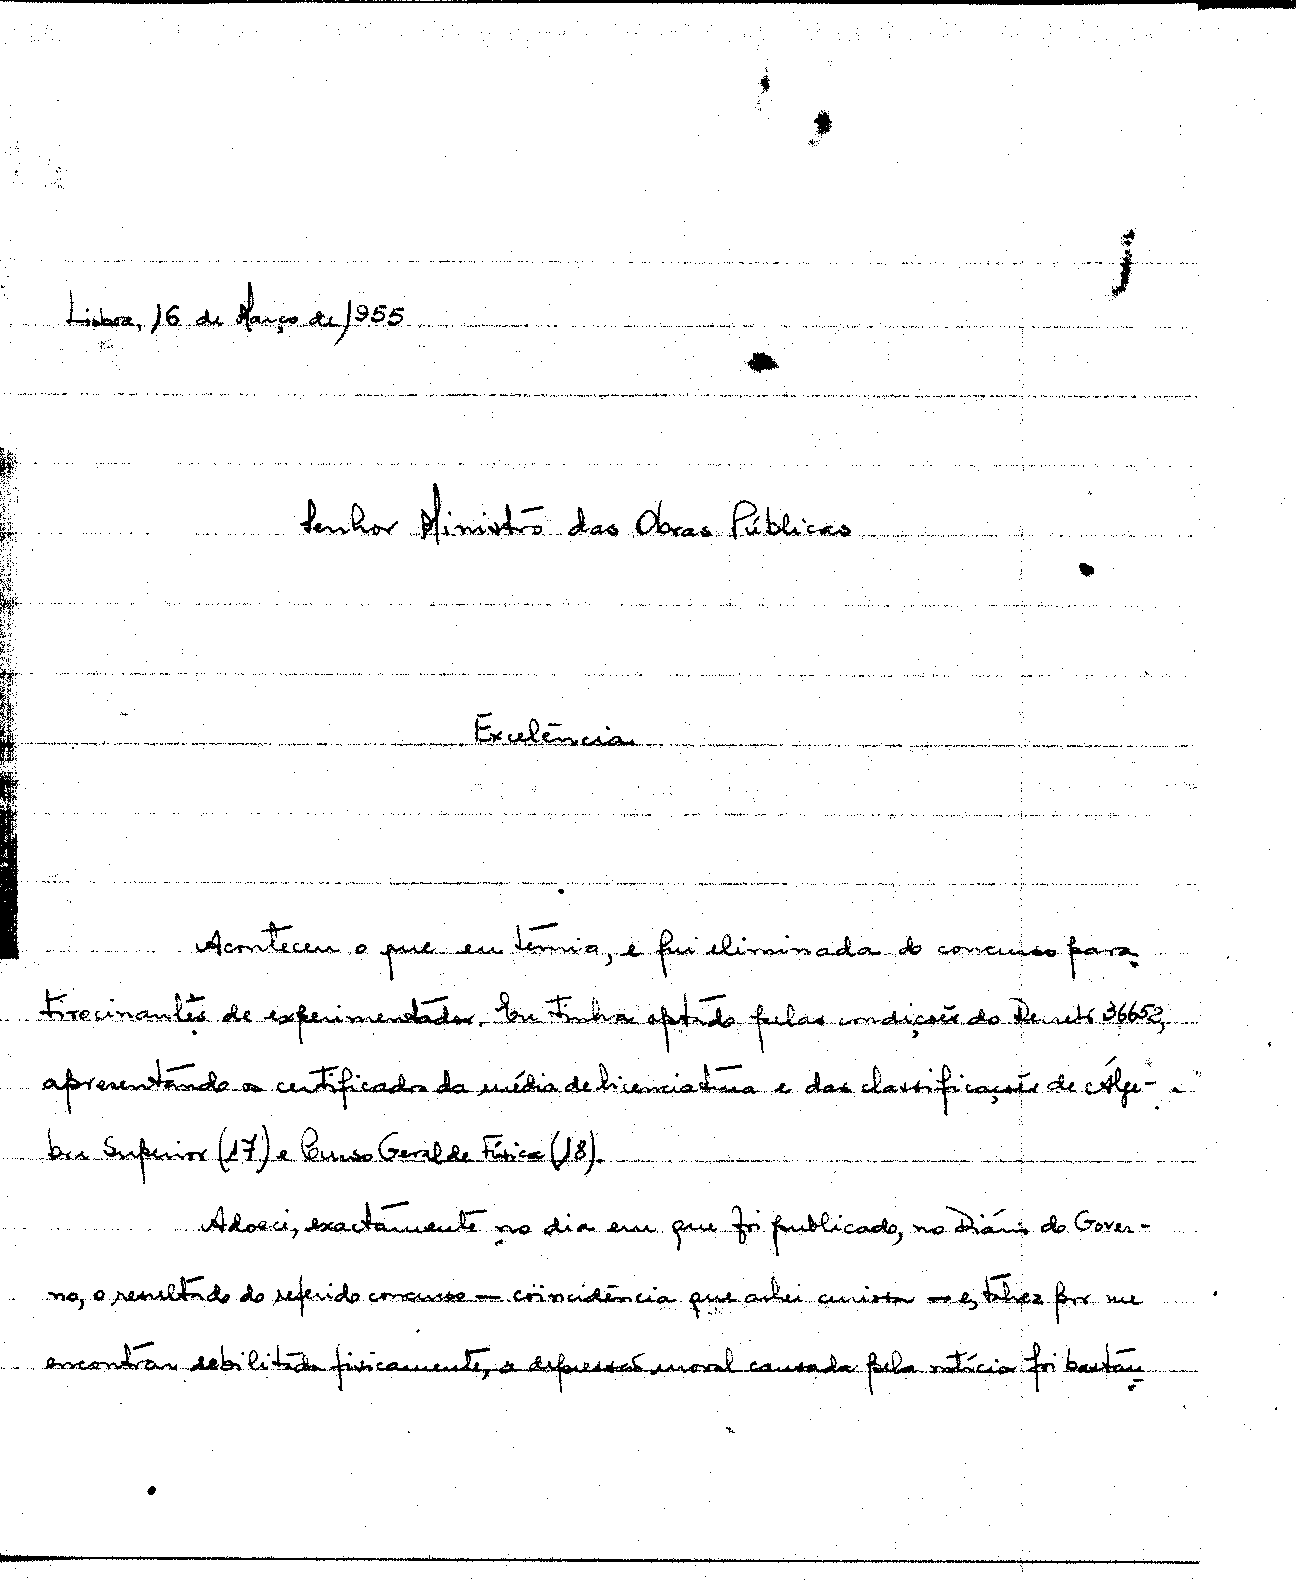 Lisboa, 16 de Março de 1955
Senhor Ministro das Obras Públicas
Excelência
Aconteceu o que eu temia, e fui eliminada do concurso para
tirocinantes de experimentador. Eu tinha optado pelas condições do Decreto 36652,
apresentando o certificado da média de licenciatura e das classificações de Álge-
bra Superior (17) e Curso Geral de Física (18).
Adoeci, exactamente no dia em que foi publicado, no Diário do Gover-
no, o resultado do referido concurso — coïncidência que achei curiosa — e, talvez por me
encontrar debilitada fisicamente, a depressão moral causada pela notícia foi bastan